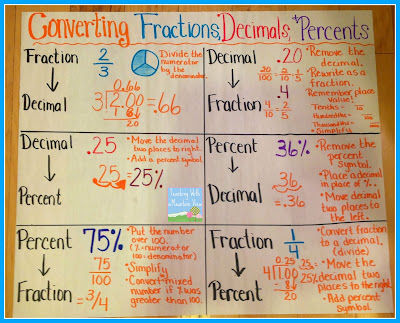 Converting Fractions, Decimals, + Percents
Fraction
2/3
Decimal
Divide the
numerator
by the
denominator.
0.66
3)2.00 = .66
20
Decimal
.20
20/100 = 2/10 = 1/5
Fraction
.4
4/10 = 2/5
*Remove the
decimal.
*Rewrite as a
fraction.
Remember place
value!
Tenths =
10
Hundredths =
Thousandths =
*Simplify
Decimal
.25
Percent
*Move the decimal
two places to right.
*Add a percent symbol.
.25 = 25%
Teaching With
a Mountain View
Percent
36%
Decimal
*Remove the
percent
symbol.
*Place a decimal
in place of %.
*Move decimal
two places to
the left.
36.
.36
Percent
75%
Fraction
75
100
= 3/4
*Put the number
over 100.
(% = numerator
100 = denominator)
*Simplify
*Convert mixed
number if % was
greater than 100.
Fraction
1/4
Percent
0.25
4)1.00
20
.25 =
25%
*Convert fraction
to a decimal.
(divide)
*Move the
decimal two
places to the
right.
*Add percent
symbol.